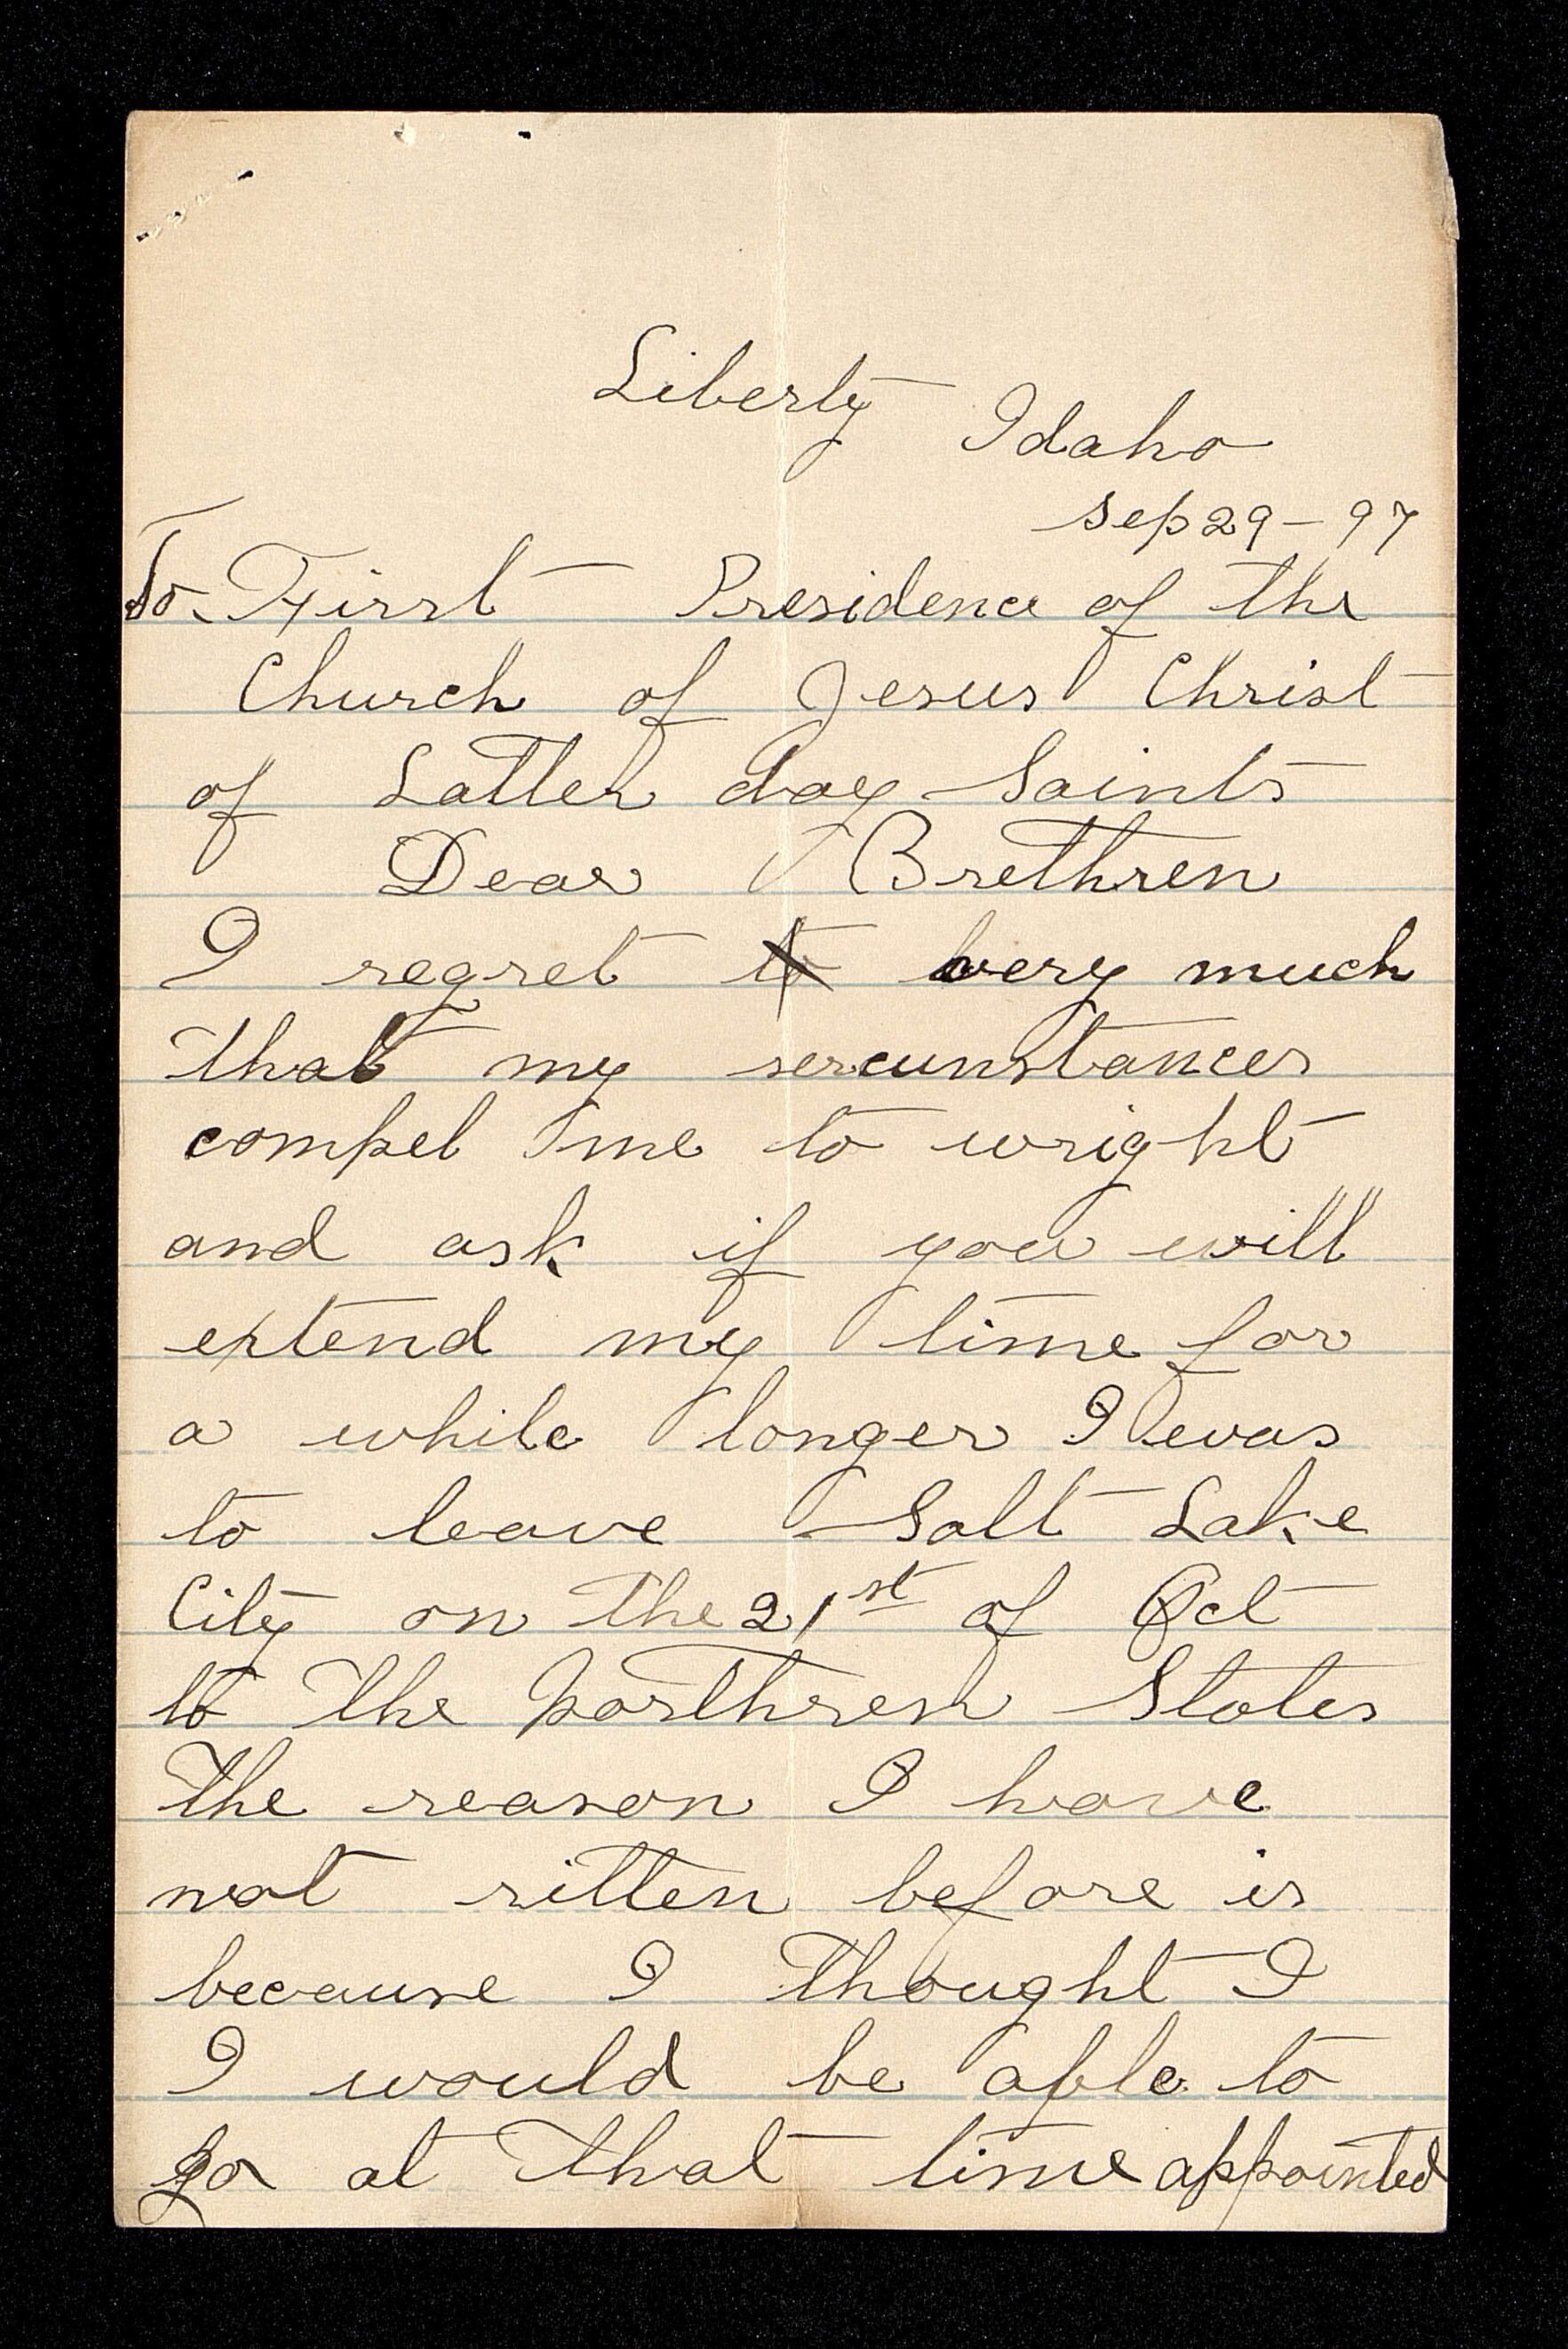 Liberty Idaho
Sep 29 - 97
To First Presidence of the
Church of Jesus Christ
of Latter day Saints
Dear Brethren
I regret to very much
that my sercumstances
compel me to wright
and ask if you will
extend my time for
a while longer I was
to leave Salt Lake
City on the 21st of Oct
to the Northren States
The reason I have
not ritten before is
because I thought I
I would be able to
go at that time appointed